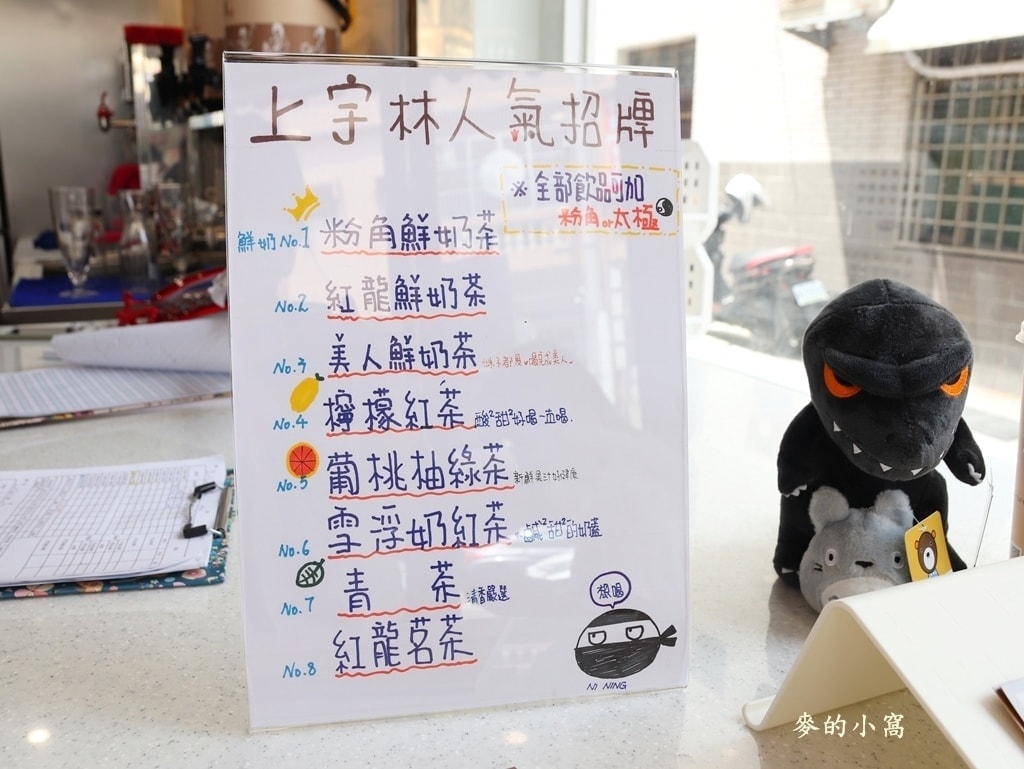 上宇林人氣招牌
※全部飲品可加
粉角or太極
鮮奶No.1 粉角鮮奶茶
No.2 紅龍鮮奶茶
No.3 美人鮮奶茶
No.4 檸檬紅茶 酸²甜²好喝一直喝.
No.5 葡桃柚綠茶
No.6 雪浮奶紅茶 鹹²甜²的奶蓋
No.7 青茶 清香嚴選
No.8 紅龍茗茶
想喝
NI NING
麥的小窩